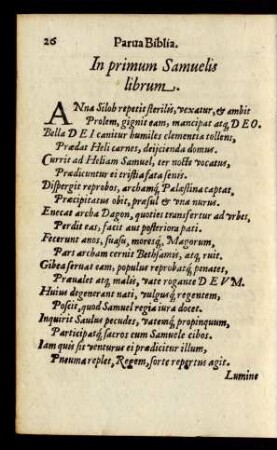 26 Parua Biblia.
In primum Samuelis
librum.
ANna Siloh repetit sterilis, vexatur, & ambit
Prolem, gignit eam, mancipat atq; DEO.
Bella DEI canitur humiles clementia tollens,
Prædat Heli carnes, deijcienda domus.
Currit ad Heliam Samuel, ter nocte vocatus,
Prædicuntur ei tristia fata senis.
Dispergit reprobos, archamq; Palæstina captat,
Præcipitatus obit, præsul & vna nurus.
Enecat archa Dagon, quoties transfertur ad vrbes,
Perdit eas; facit aut posteriora pati.
Fecerunt anos, suasu, moresq; Magorum,
Pars archam cernit Bethsamis, atq; ruit.
Gibea seruat eam, populus reprobatq; penates,
Præualet atq; malis, vate rogante DEVM.
Huius degenerant nati, vulgusq; regentem,
Poscit, quod Samuel regia iura docet.
Inquirit Saulus pecudes, vatemq; propinquum,
Participatq; sacros cum Samuele cibos.
Iam quis sit venturus ei prædicitur illum,
Pneuma replet, Regem, sorte repertus agit.
Lumine